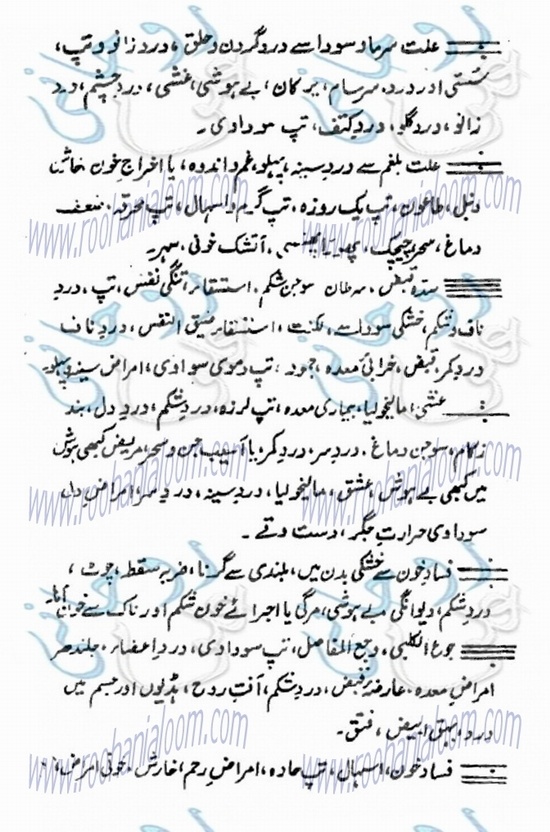 علت سرما و سودا سے درد گردن و حلق، درد زانو و تپ،
سستی اور درد، سرسام، یرقان، بے ہوشی، غشی، درد چشم، درد
زانو، درد گلو، درد کتف، تپ سوداوی۔
علت بلغم سے درد سینہ، پہلو، غم و اندوہ، یا اخراج خون خارش
دنبل، طاعون، تپ یک روزہ، تپ گرم و اسہال، تپ محرقہ، ضعف
دماغ، سحر، چیچک، پھوڑا پھنسی، آتشک خونی، سہر۔
سدہ قبض، سرطان سوجن شکم، استسقاء، تنگی نفس، تپ، درد
ناف و شکم، خشکی سودا سے، لکنت، استسقاء ضیق النفس، درد ناف
درد کمر، قبض، خرابی معدہ، جمود، تپ دموی سوداوی، امراض سینہ پہلو۔
غشی، مالیخولیا، بیماری معدہ، تپ لرزہ، درد شکم، درد دل، بند
زکام، سوجن دماغ، درد سر، درد کمر، یا آسیب جن و سحر، مریض کبھی ہوش
میں کبھی بے ہوش، عشق، مالیخولیا، درد سینہ، درد سر، امراض دل
سوداوی حرارت جگر، دست و قے۔
فساد خون سے خشکی بدن میں، بلندی سے گرنا، ضربہ سقطہ، چوٹ،
درد شکم، دیوانگی بے ہوشی، مرگی یا اجرائے خون شکم اور ناک سے خون آنا۔
جوع الکلبی، وجع المفاصل، تپ سوداوی، درد اعضاء، جلندھر
امراض معدہ، عارضہ قبض، درد شکم، آفت روح، ہڈیوں اور جسم میں
درد، بہق ابیض، فتق۔
فساد خون، اسہال، تپ حادہ، امراض رحم، خارش، خونی امراض،
www.roohanialoom.com
www.roohanialoom.com
www.roohanialoom.com
www.roohanialoom.com
www.roohanialoom.com
www.roohanialoom.com